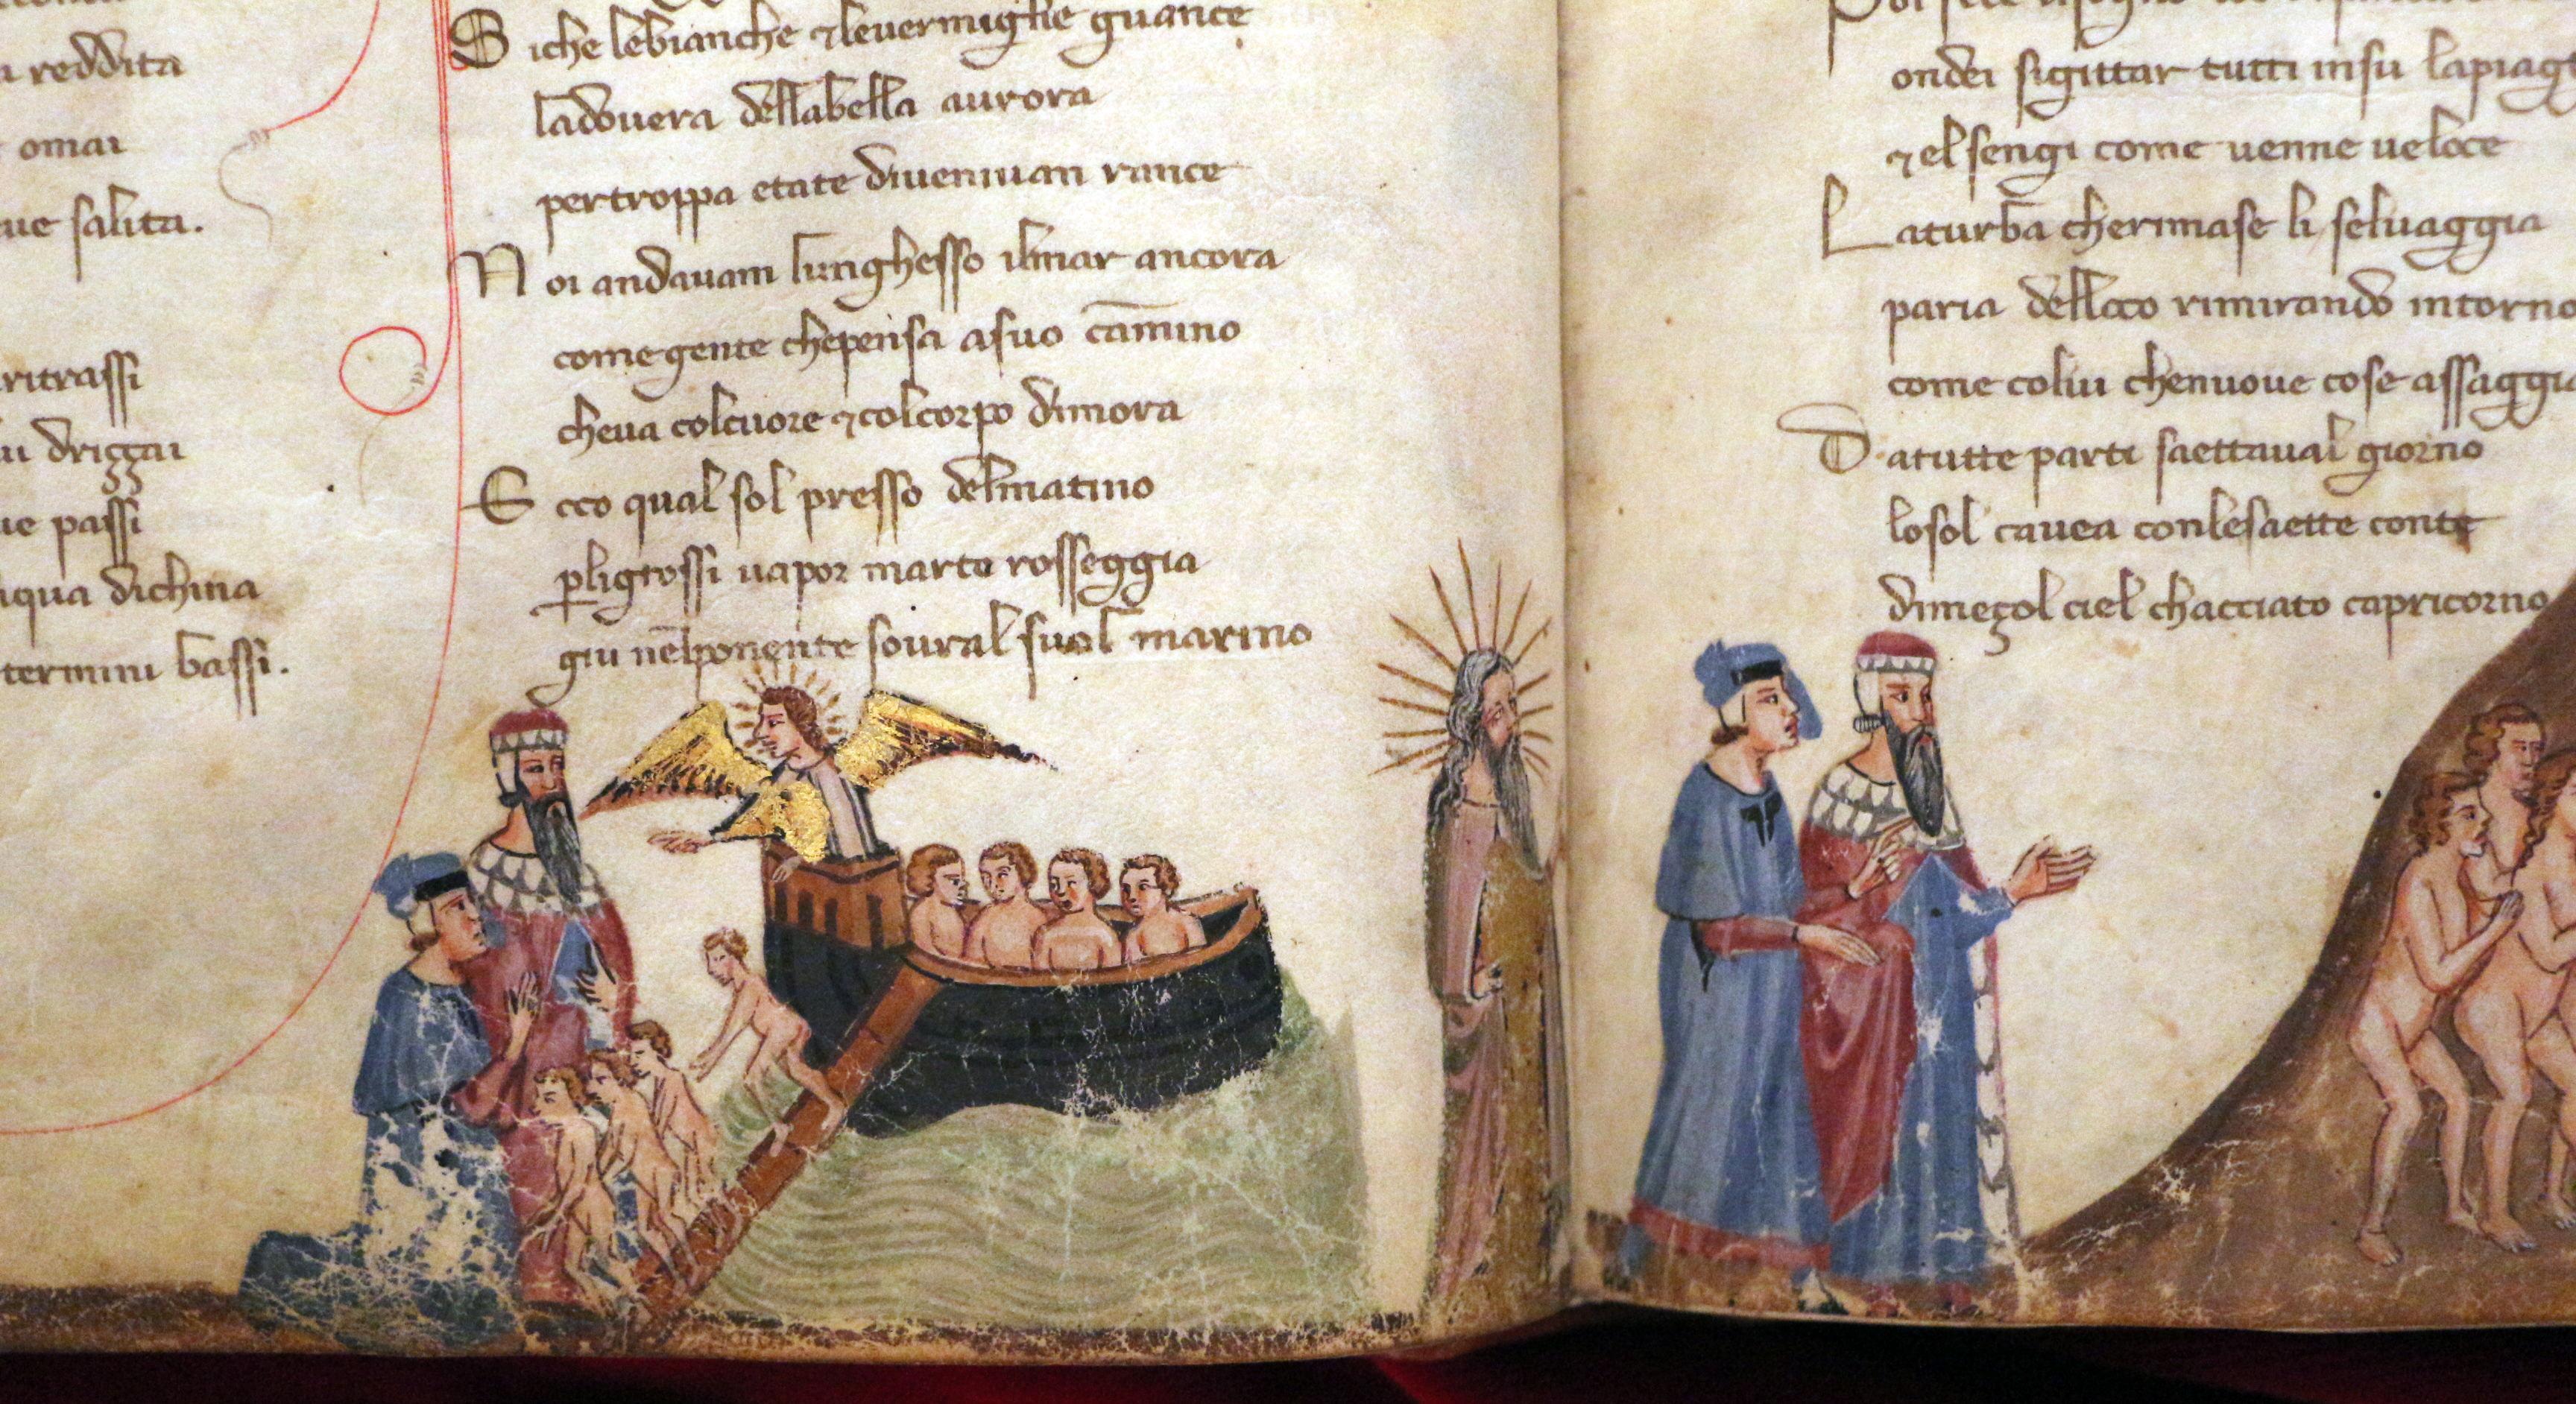 reddita
omai
ue salita.
ritrassi
ui driççai
ue passi
iqua dichina
termini bassi.
Siche lebianche ⁊leuermiglie guance
ladouera dellabella aurora
pertroppa etate diueniuan rance
Noi andauam lunghesso ilmar ancora
come gente chepensa asuo cāmino
cheua colcuore ⁊colcorpo dimora
Ecco qual sol presso delmatino
ꝑligrossi uapor marte rosseggia
giu nelponente soural suol marino
ondei sigittar tutti insu lapiagg
⁊ elsengi come uenne ueloce
Laturba cherimase li seluaggia
paria delloco rimirando intorno
come colui chenuoue cose assaggia
Datutte parti saettaual giorno
losol cauea conlesaette conte
dimeçol ciel chacciato capricorno